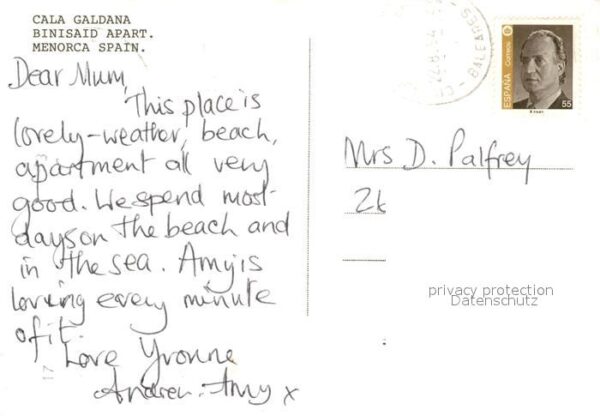 CALA GALDANA
BINISAID APART.
MENORCA SPAIN.
Dear Mum,
This place is
lovely-weather, beach,
apartment all very
good. We spend most
days on the beach and
in the sea. Amy is
loving every minute
of it.
Love Yvonne
Andrew. Amy x
BALEARES
ESPAÑA
Correos
55
Mrs D. Palfrey
privacy protection
Datenschutz